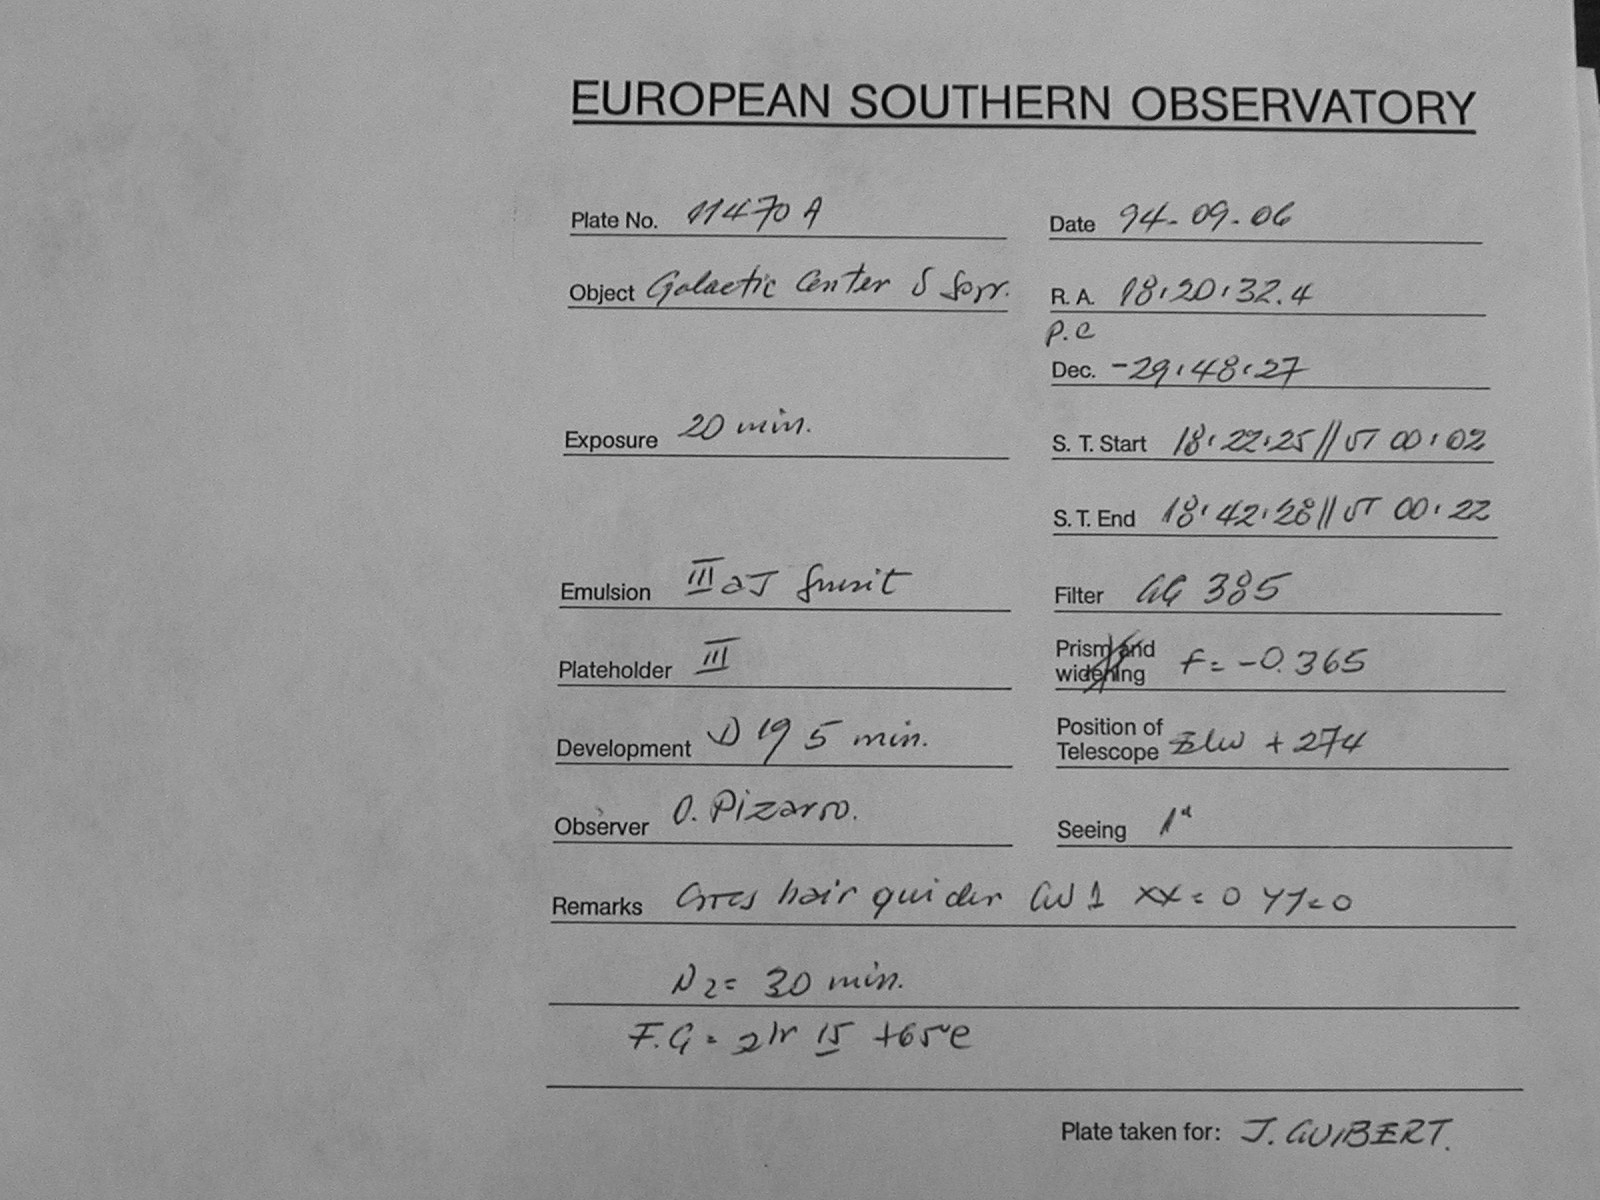 EUROPEAN SOUTHERN OBSERVATORY
Plate No. 11470 A
Date 94-09-06
Object Galactic Center S
R. A. 18:20:32.4
P.C
Dec. -29:48:27
Exposure 20 min.
S. T. Start 18:22:25 // UT 00:02
S. T. End 18:42:28 // UT 00:22
Emulsion III aJ
Filter GG 385
Plateholder III
Prism and widening F= -0.365
Development D 19 5 min.
Position of Telescope + 274
Observer O. Pizarro.
Seeing 1"
Remarks hair guider GW 1 XX = 0 YY = 0
N2 = 30 min.
F.G = 2hr 15 +65°C
Plate taken for: J. GUIBERT.